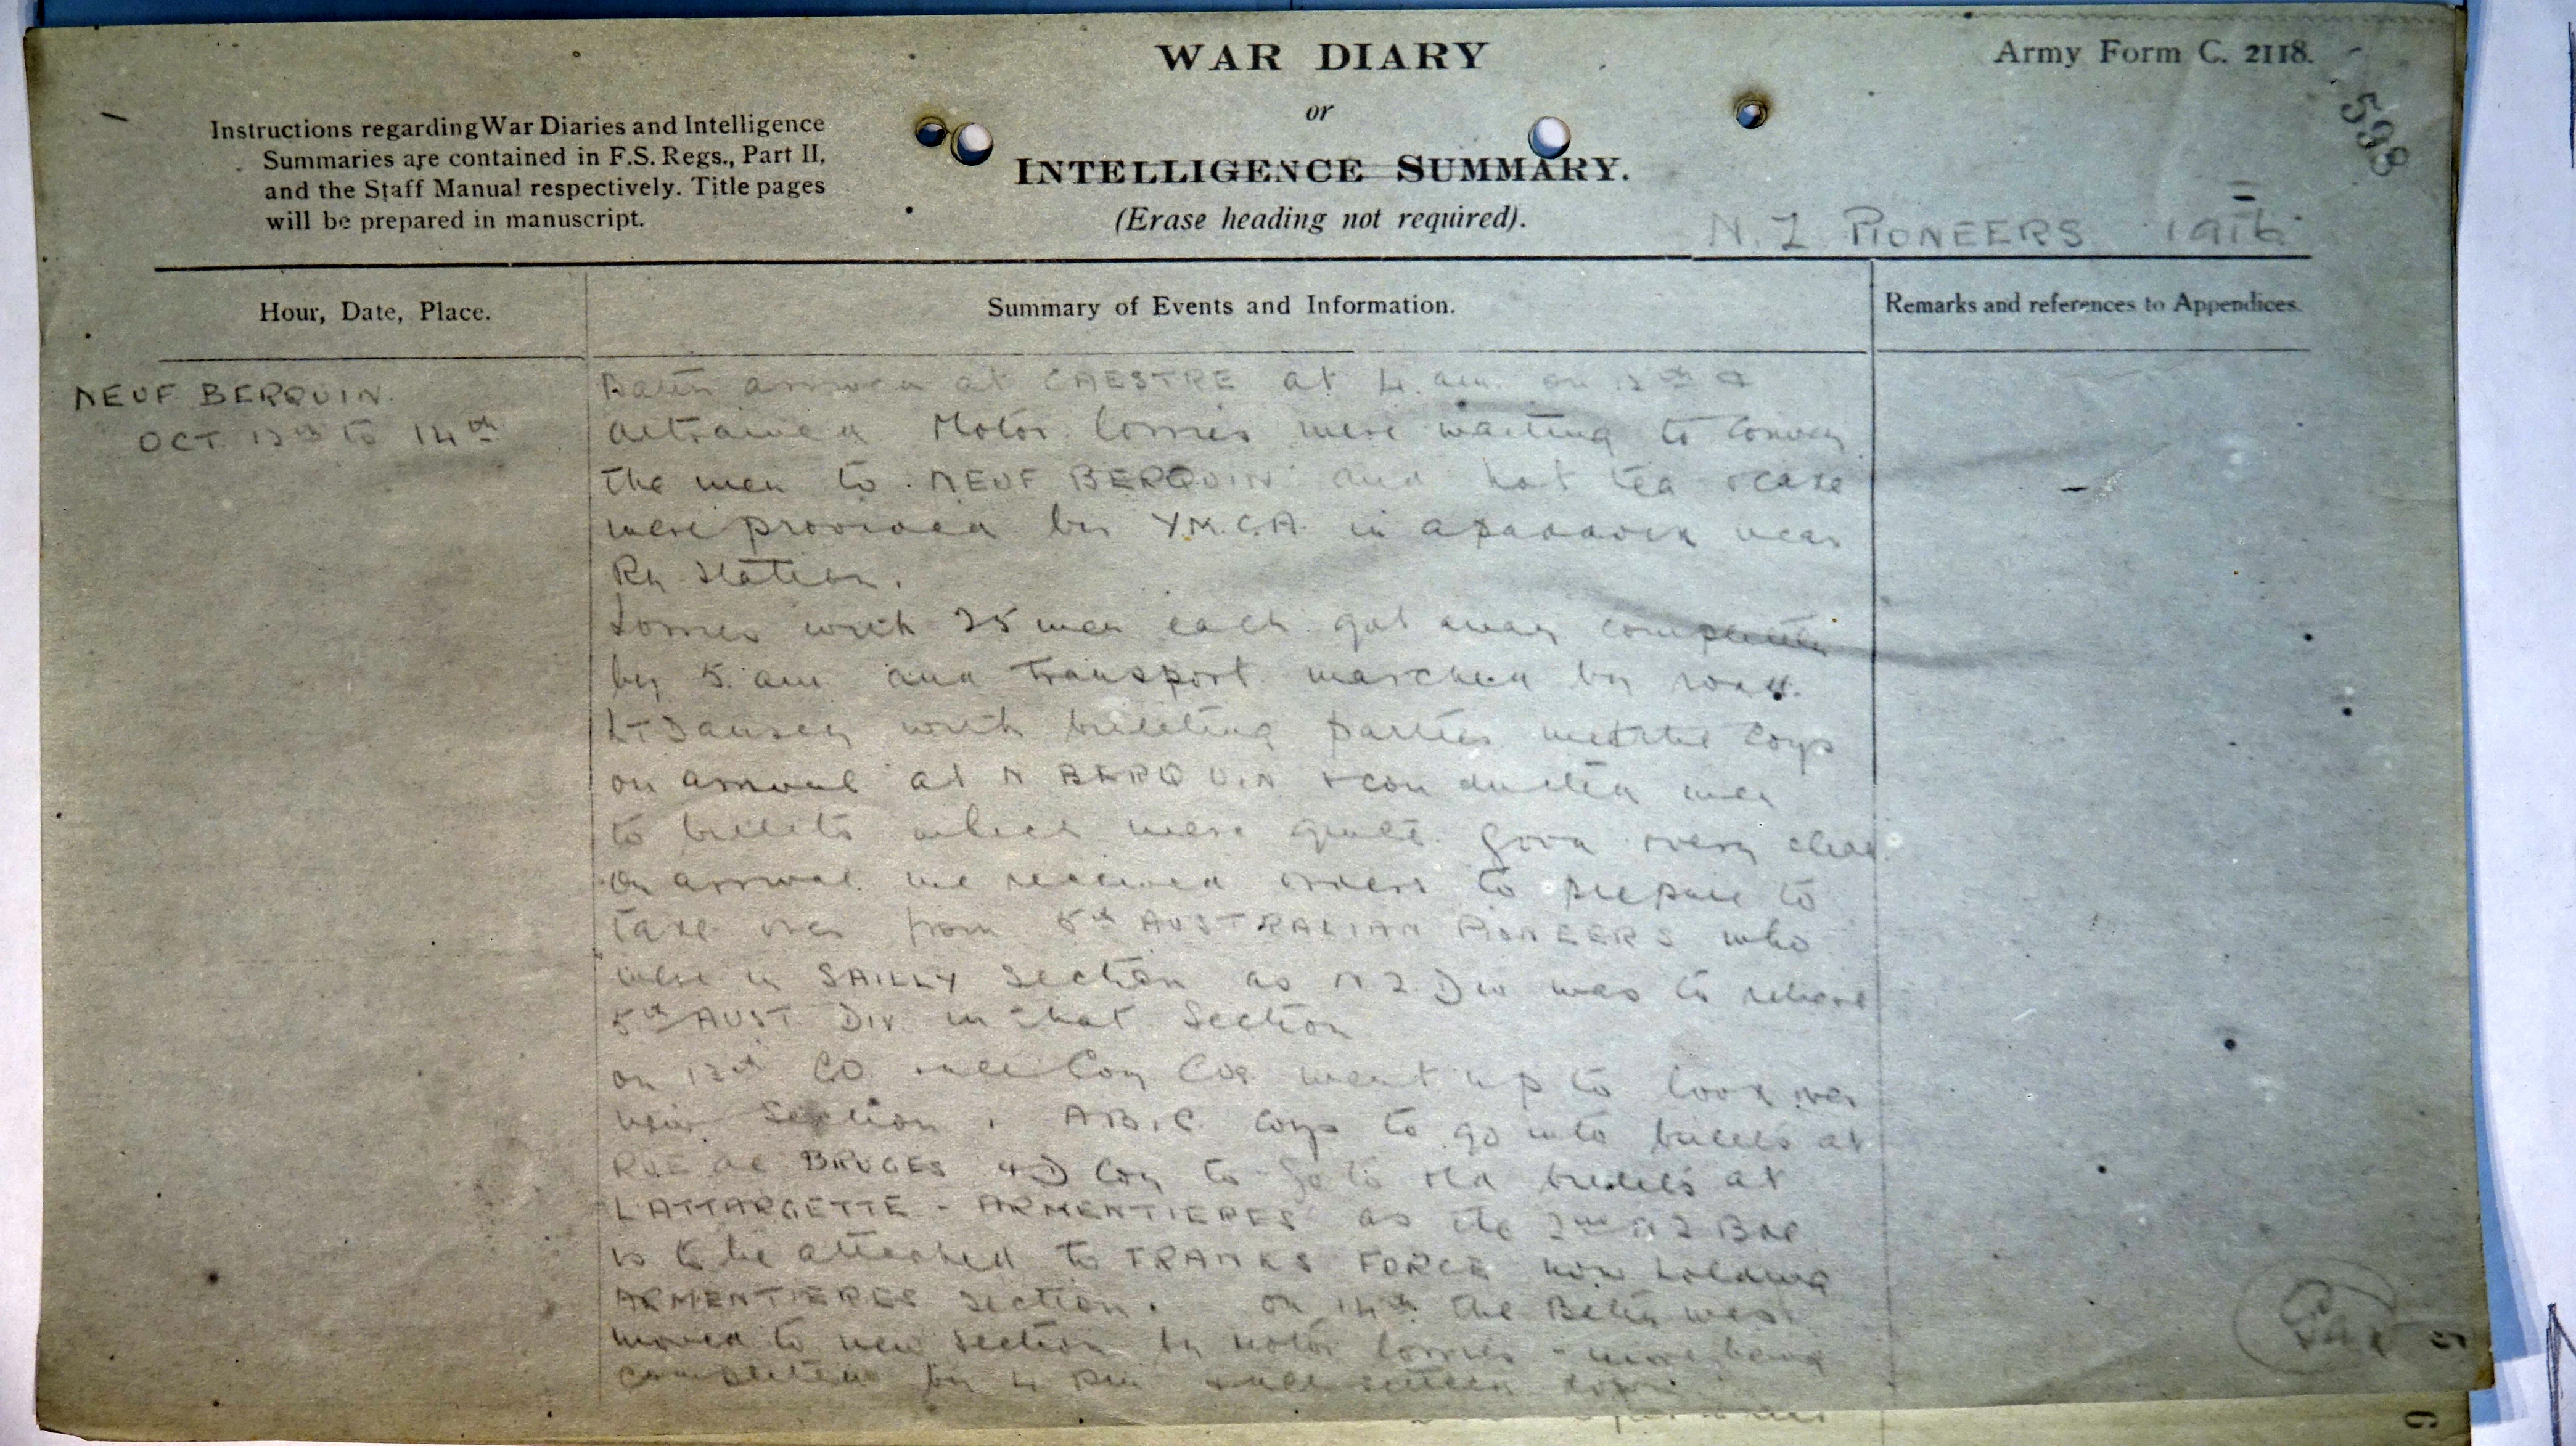 WAR DIARY
or
INTELLIGENCE SUMMARY.
(Erase heading not required).
Army Form C. 2118.
598
Instructions regarding War Diaries and Intelligence
Summaries are contained in F.S. Regs., Part II,
and the Staff Manual respectively. Title pages
will be prepared in manuscript.
N.Z PIONEERS 1916
Hour, Date, Place.
Summary of Events and Information.
Remarks and references to Appendices.
NEUF BERQUIN.
OCT 13th to 14th
Battn arrived at CAESTRE at 4. am. on 13th &
detrained Motor lorries were waiting to convey
the men to NEUF BERQUIN and hot tea & cake
were provided by Y.M.C.A. in a paddock near
Ry Station.
Lorries with 25 men each got away completely
by 5. am and transport marched by road.
Lt Dansey with billeting parties met the Coys
on arrival at N BERQUIN & conducted men
to billets which were quite good & very clean.
On arrival we received orders to prepare to
take over from 5th AUSTRALIAN PIONEERS who
were in SAILLY Section as NZ. Div was to relieve
5th AUST. Div. in that Section
on 13th CO. & all Coy Cos. went up to look over
new Section. A.B.&C. Coys to go into billets at
RUE de BRUGES & D Coy to go to old billets at
LATTARGETTE - ARMENTIERES as the 2nd NZ Bde
is to be attached to FRANKS FORCE now holding
ARMENTIERES Section. On 14th the Battn was
moved to new section by motor lorries - move being
completed by 4 pm & all settled down.
5
6